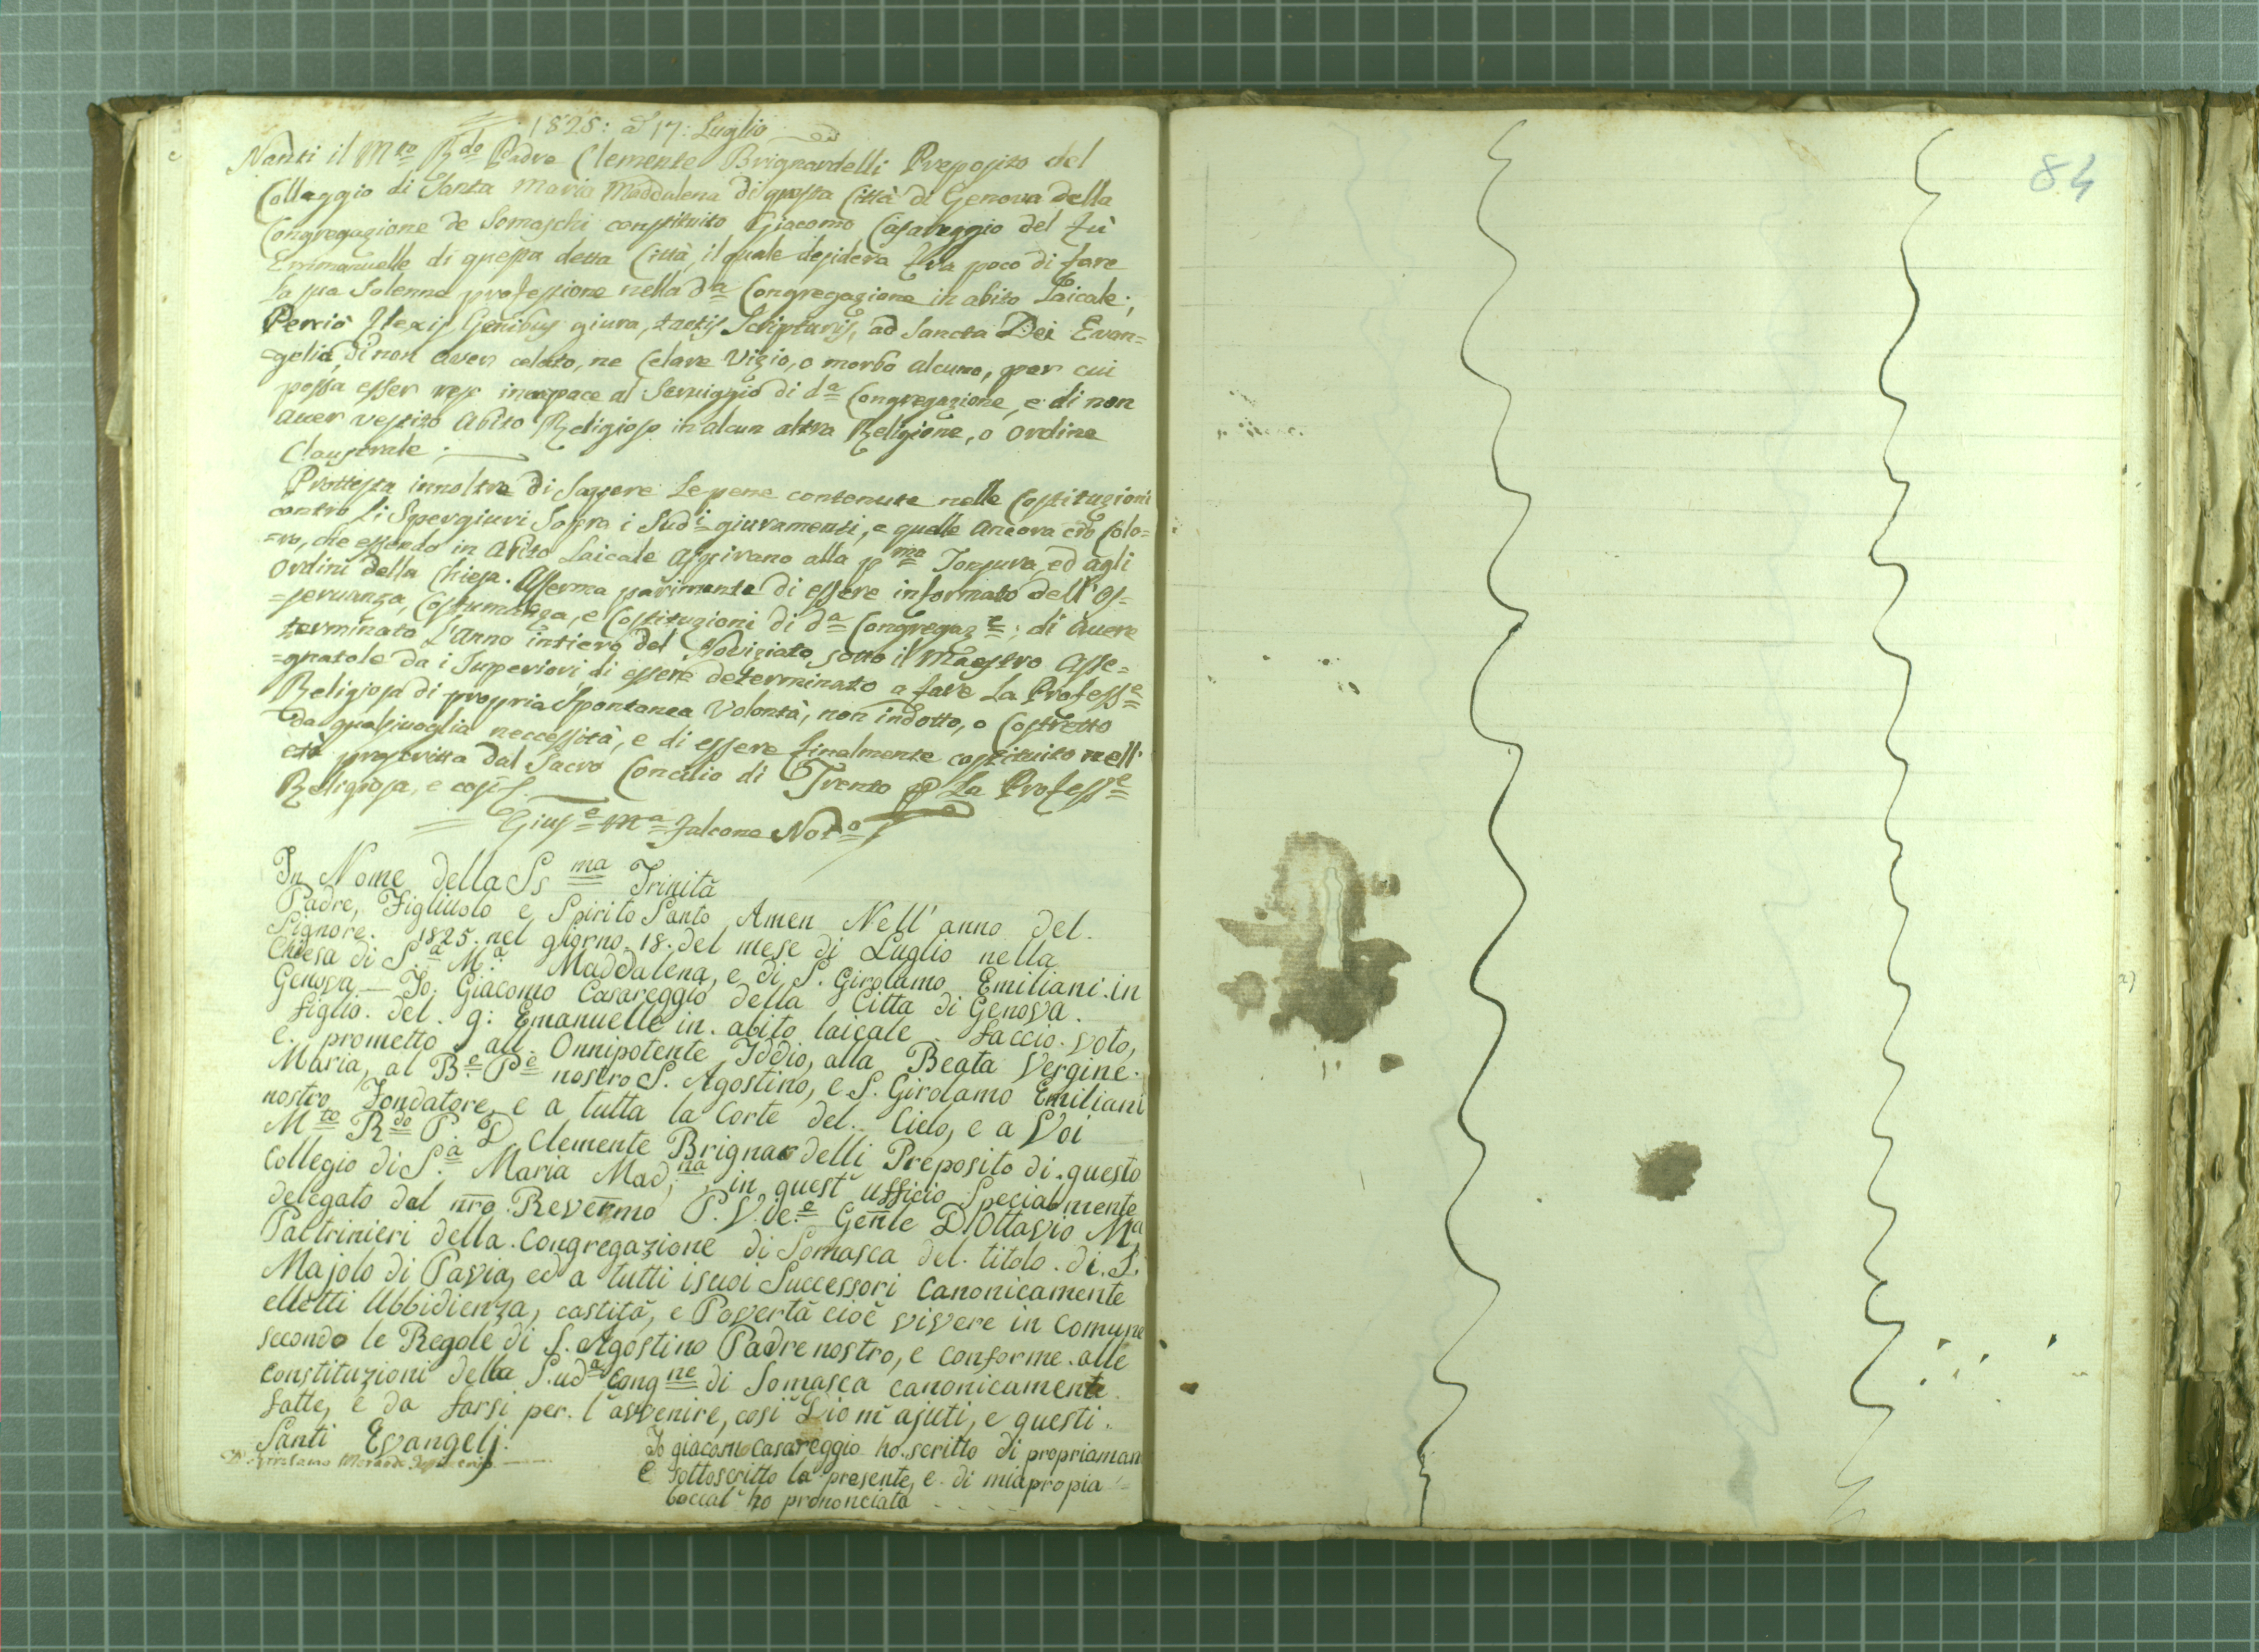 1825: a 17: Luglio
Nanti il Mto Rdo Padre Clemente Brignardelli Preposito del
Colleggio di Santa Maria Maddalena di questa Città di Genova della
Congregazione de Somaschi constituito Giacomo Casareggio del fù
Emmanuelle di questa detta Città, il quale desidera fra poco di fare
La sua Solenne professione nella da Congregazione in abito Laicale;
Perciò Flexis Genibus giura, tactis Scripturis, ad Sancta Dei Evan=
=gelia, di non aver celato, ne Celare Vizio, o morbo alcuno, per cui
possa esser reso incapace al Serviggio di da Congregazione, e di non
aver vestito Abito Religioso in alcun altra Religione, o ordine
Claustrale.
Prottesta innoltre di Sapere Le pene contenute nelle Costituzioni
contro Li Spergiuri Sopra i Sudi giuramenti, e quelle Ancora cro Colo=
=ro, che essendo in Abito Laicale Aspirano alla pma Tonsura, ed agli
ordini della Chiesa. Afferma parimente di essere informato dell'Os=
=servanza, Costumanza, e Costituzioni di da Congregaze; di Avere
terminato L'anno intiero del Noviziato sotto il Maestro Asse=
=gnatole da i Superiori di essere determinato a fare La Professe
Religiosa di propria Spontanea Volontà, non indotto, o Costretto
da qualsivoglia neccessità, e di essere finalmente costituito nell'
età prescritta dal Sacro Concilio di Trento La Professe
Religiosa, e così
Giuse Ma Falcone Noto
In Nome della Ssma Trinità
Padre, Figliuolo e Spirito Santo Amen Nell' anno del
Signore. 1825. nel giorno 18. del mese di Luglio nella
Chiesa di S.a M.a Maddalena, e di S. Girolamo Emiliani in
Genova — Io. Giacomo Casareggio della Citta di Genova.
figlio. del. q: Emanuelle in. abito laicale. faccio. voto,
e. prometto all'. Onnipotente Iddio, alla Beata Vergine.
Maria, al Be Pe nostro S. Agostino, e S. Girolamo Emiliani
nostro Fondatore, e a tutta la Corte del. Cielo, e a Voi
Mto Rdo P. D. Clemente Brignardelli Preposito di. questo
Collegio di S.a Maria Mad;na, in quest' ufficio Specialmente
delegato dal nro Revermo P. Vice Genle D Ottavio Ma
Paltrinieri della. Congregazione di Somasca del. titolo. di. S.
Majolo di Pavia, ed a tutti i suoi Successori Canonicamente
elletti Ubbidienza, castità, e Povertà cioè vivere in Comune
secondo le Regole di S. Agostino Padre nostro, e conforme. alle
constituzioni della S.uda Congne di Somasca canonicamente
fatte, e da farsi per. l'avvenire, così Dio m'ajuti, e questi.
Santi Evangelj.
Io giacomo casareggio ho. scritto di propria man
e sottoscritto la presente, e. di mia propia
bocca l' ho prononciata
84